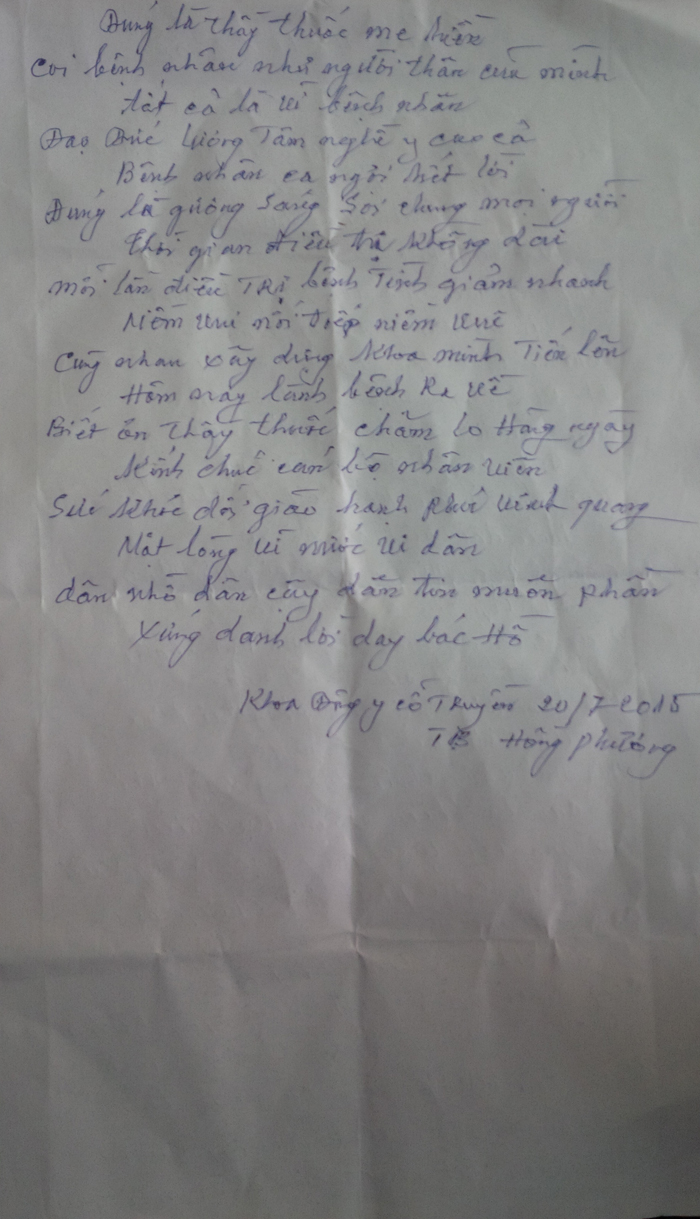 Đúng là thầy thuốc mẹ hiền
Coi bệnh nhân như người thân của mình
tất cả là vì bệnh nhân
Đạo Đức Lương Tâm nghề y cao cả
Bệnh nhân ca ngợi hết lời
Đúng là gương Sáng Soi chung mọi người
thời gian điều trị không dài
mỗi lần điều TRị bệnh Tình giảm nhanh
Niềm vui nối tiếp niềm vui
Cùng nhau xây dựng khoa mình Tiến lên
Hôm nay lành bệnh Ra về
Biết ơn thầy thuốc chăm lo Hàng ngày
Kính chúc cán bộ nhân viên
Sức khỏe dồi giào hạnh phúc vinh quang
Một lòng vì nước vì dân
dân nhớ dân cậy dân tin muôn phần
Xứng danh lời dạy bác Hồ
Khoa Đông y cổ Truyền 20/7-2015
TB Hồng Phương